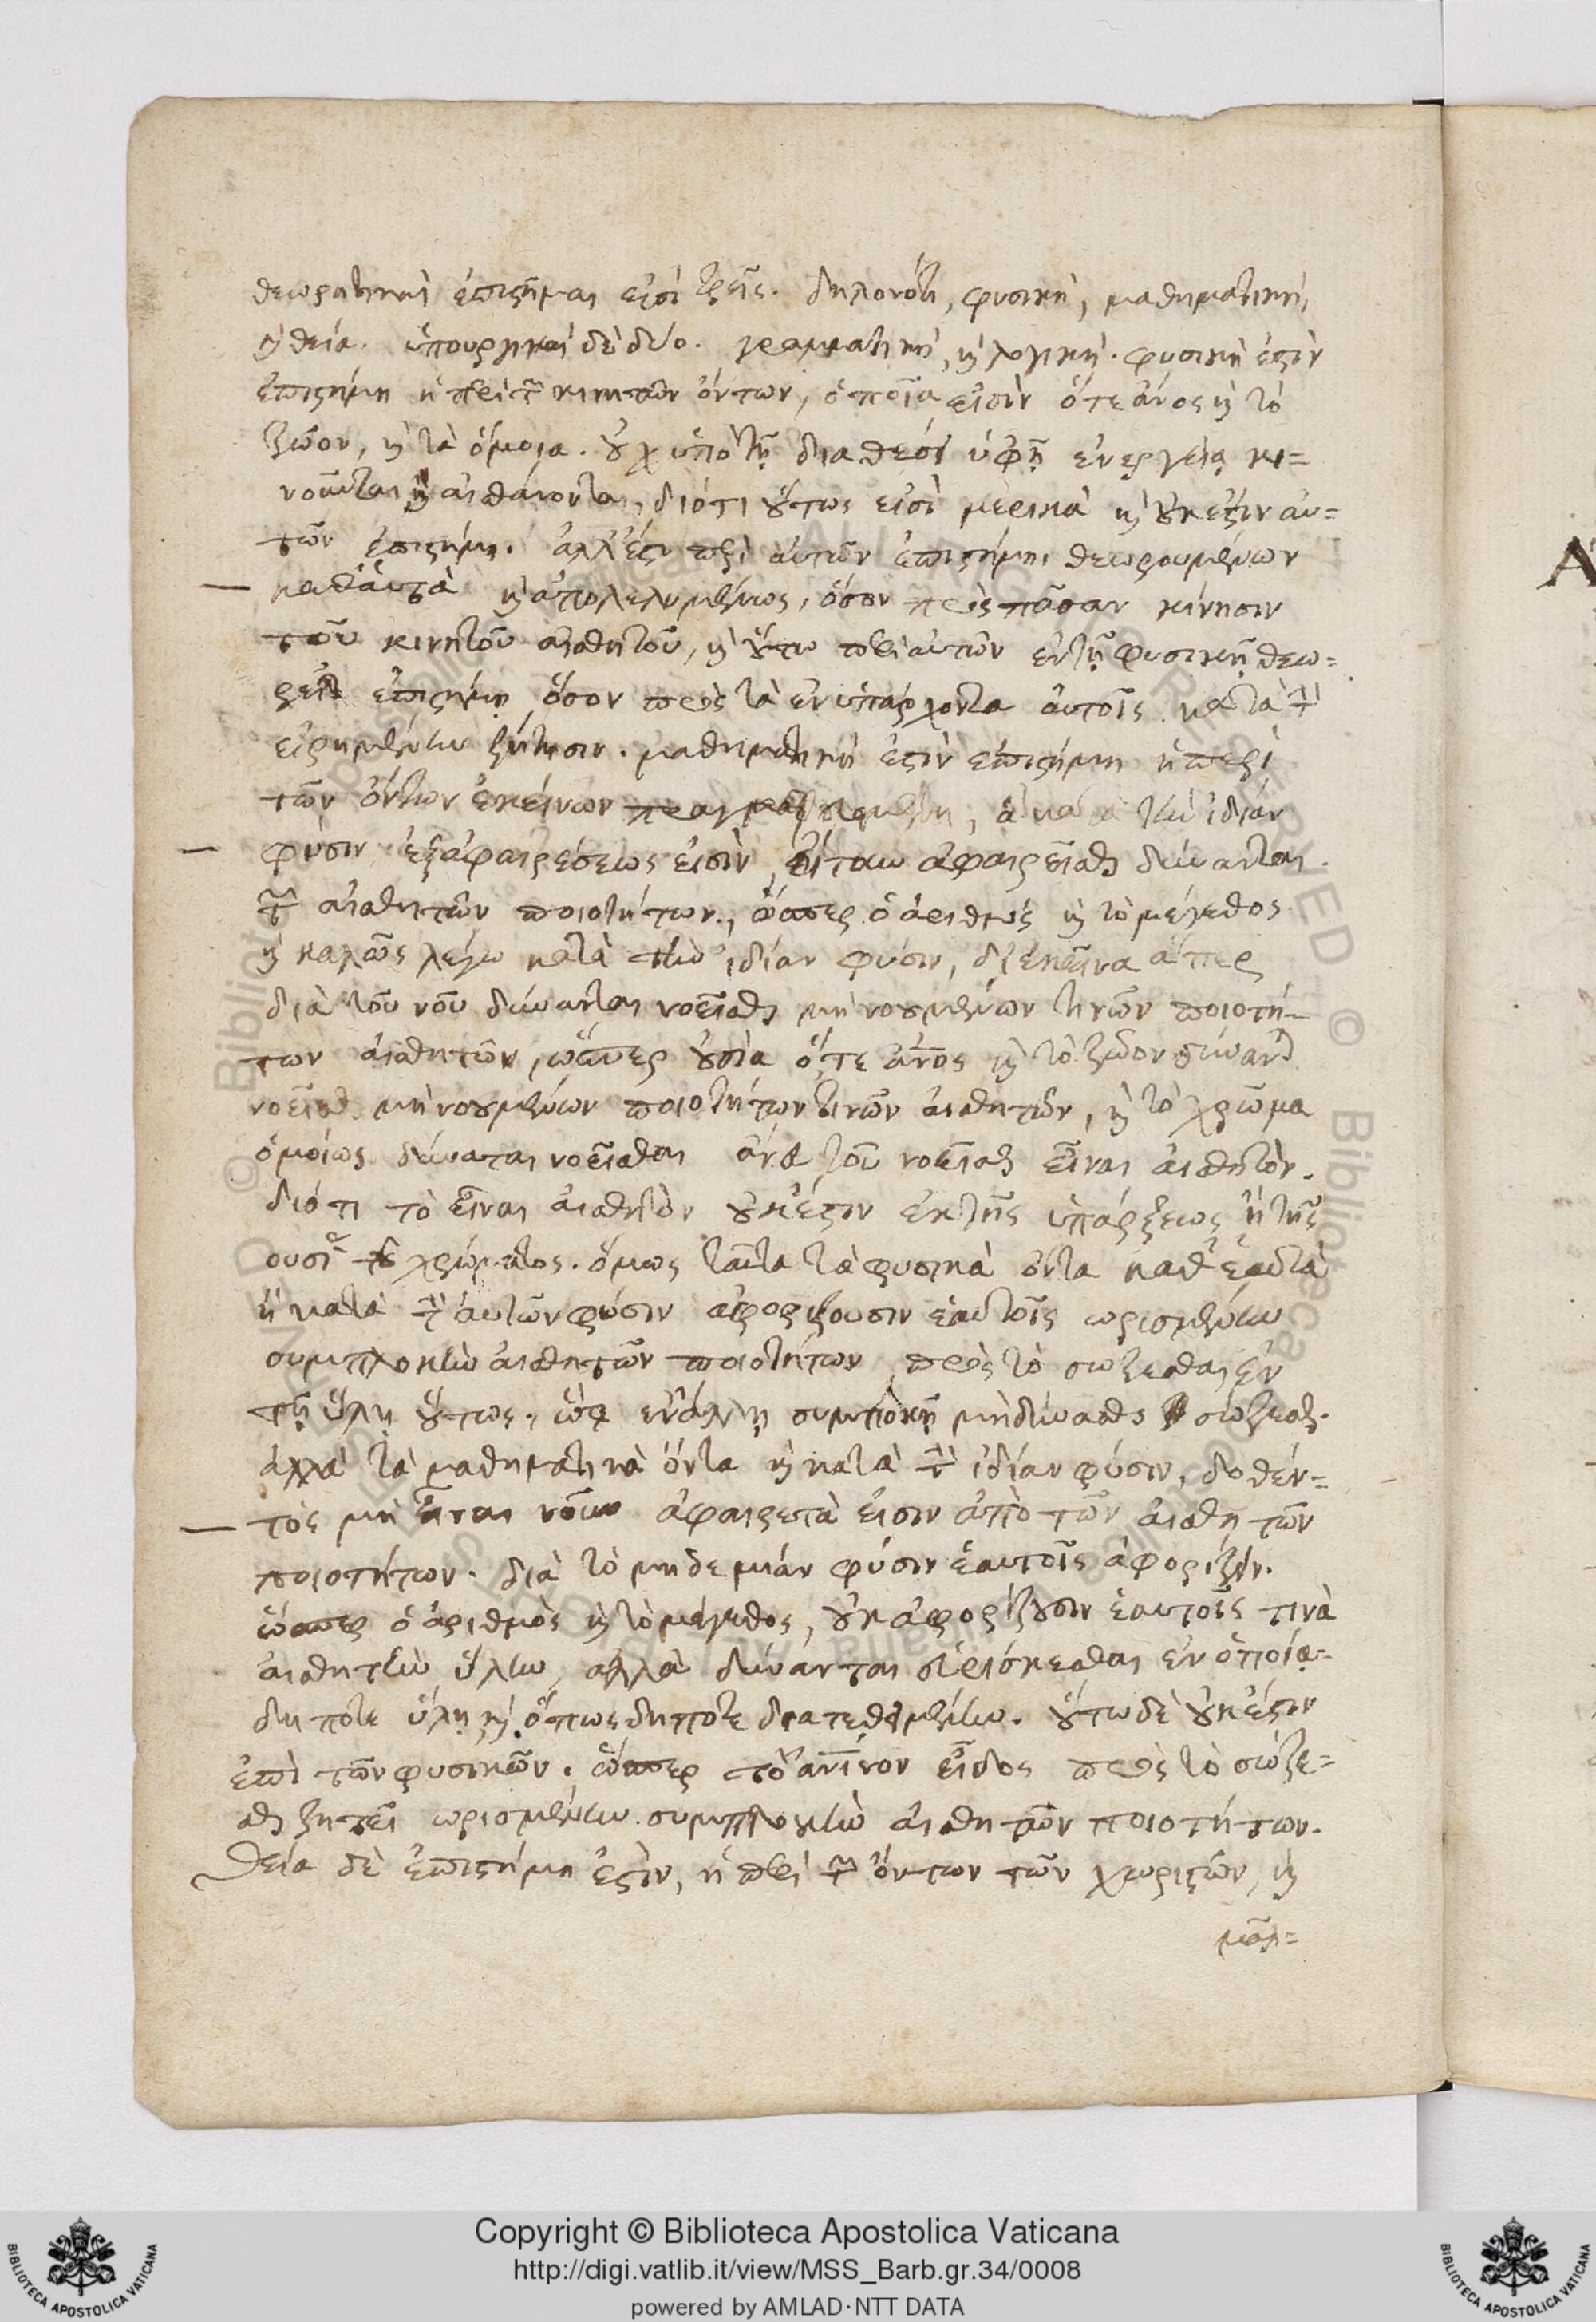 θεωρητικαὶ ἐπιστῆμαι εἰσὶ τρεῖς. δηλονότι, φυσικὴ, μαθηματικὴ,
ϗ θεία. ὑπουργικαὶ δὲ δύο. γραμματικὴ, ϗ λογικὴ. φυσικὴ ἐστὶν
ἐπιστήμη ἡ περὶ τῶν κινητῶν ὄντων, ὁποῖα εἰσὶν ὅτε ἄνος ϗ τὸ
ζῶον, ϗ τὰ ὅμοια. ȣ̓χ ὑπὸ τῇ διαθέσει ὑφ ᾗ ἐνεργείᾳ κι=
νοῦνται ϗ αἰσθάνονται, διότι ȣ̔́τως εἰσὶ μερικὰ ϗ ȣ̓κ ἔστιν αὐ=
τῶν ἐπιστήμη. ἀλλ' ἔστι περὶ αὐτῶν ἐπιστήμη θεωρουμένων
καθ' ἁυτὰ ϗ ἀπολελυμένως, ὅσον πρὸς πᾶσαν κίνησιν
τοῦ κινητοῦ αἰσθητοῦ, ϗ ȣ̔́τω περὶ αὐτῶν ἐν τῇ φυσικῇ θεω=
ἐπιστήμη ὅσον πρὸς τὰ ἐνυπάρχοντα ἀυτοῖς κατὰ τὴν
εἰρημένην ζήτησιν. μαθηματικὴ ἐστὶν ἐπιστήμη ἡ περὶ
τῶν ὄντων ἐκείνων ἃ κατὰ τὴν ἰδίαν
φύσιν ἐξ ἀφαιρέσεως εἰσὶν, ἀφαιρεῖσθαι δύνανται
τῶν αἰσθητῶν ποιοτήτων, ὥσπερ ὁ ἀριθμὸς ϗ τὸ μέγεθος
ϗ καλῶς λέγω κατὰ τὴν ἰδίαν φύσιν, δι' ἐκεῖνα ἅπερ
διὰ τοῦ νοῦ δύνανται νοεῖσθαι μὴ νοȣμένων τινῶν ποιοτή=
των αἰσθητῶν, ὥσπερ ȣ̓σία ὅ,τε ἄνος ϗ τὸ ζῶον δύναν)
νοεῖσθ. μὴ νοȣμένων ποιοτήτων τινῶν αἰσθητῶν, ϗ τὸ χρῶμα
ὁμοίως δύναται νοεῖσθαι ἄνευ τοῦ νοεῖσθαι εἶναι αἰσθητὸν.
διότι τὸ εἶναι αἰσθητὸν ȣ̓κ ἔστιν ἐκ τῆς ὑπάρξεως ἢ τῆς
ουσίας τȣ χρώματος. ὅμως ταῦτα τὰ φυσικὰ ὄντα καθ' ἑαυτὰ
ἢ κατὰ τὴν ἀυτῶν φύσιν ἀφορίζουσιν ἑαυτοῖς ὡρισμένην
συμπλοκὴν αἰσθητῶν ποιοτήτων πρὸς τὸ σώζεσθαι ἐν
τῇ ὕλῃ ȣ̔́τως, ὥστε ἐν ἄλλῃ συμπλοκῇ μὴ δύνασθαι σώζεσθ.
ἀλλὰ τὰ μαθηματικὰ ὄντα ϗ κατὰ τὴν ἰδίαν φύσιν, δοθέν=
τος μὴ εἶναι νοῦν ἀφαιρετὰ εἰσιν ἀπὸ τῶν αἰσθητῶν
ποιοτήτων. διὰ τὸ μηδεμιάν φύσιν ἑαυτοῖς ἀφορίζειν.
ὥσπερ ὁ ἀριθμὸς ϗ τὸ μέγεθος, ȣ̓κ ἀφορίζȣσιν ἑαυτοῖς τινὰ
αἰσθητὴν ὕλην, ἀλλὰ δύνανται εὑρίσκεσθαι ἐν ὁποίᾳ=
δήποτε ὕλῃ, ϗ ὅπως δήποτε διατεθειμένην. ȣ̔́τω δὲ ȣ̓κ ἔστιν
ἐπὶ τῶν φυσικῶν. ὥσπερ τὸ ἀνίνον εἶδος πρὸς τὸ σώζε=
σθ ζητεῖ ὡρισμένην συμπλοκὴν αἰσθητῶν ποιοτήτων.
Θεία δὲ ἐπιστήμη ἐστὶν, ἡ περὶ τῶν ὄντων τῶν χωριστῶν, ϗ
μᾶλ=
Copyright © Biblioteca Apostolica Vaticana
http://digi.vatlib.it/view/MSS_Barb.gr.34/0008
powered by AMLAD·NTT DATA